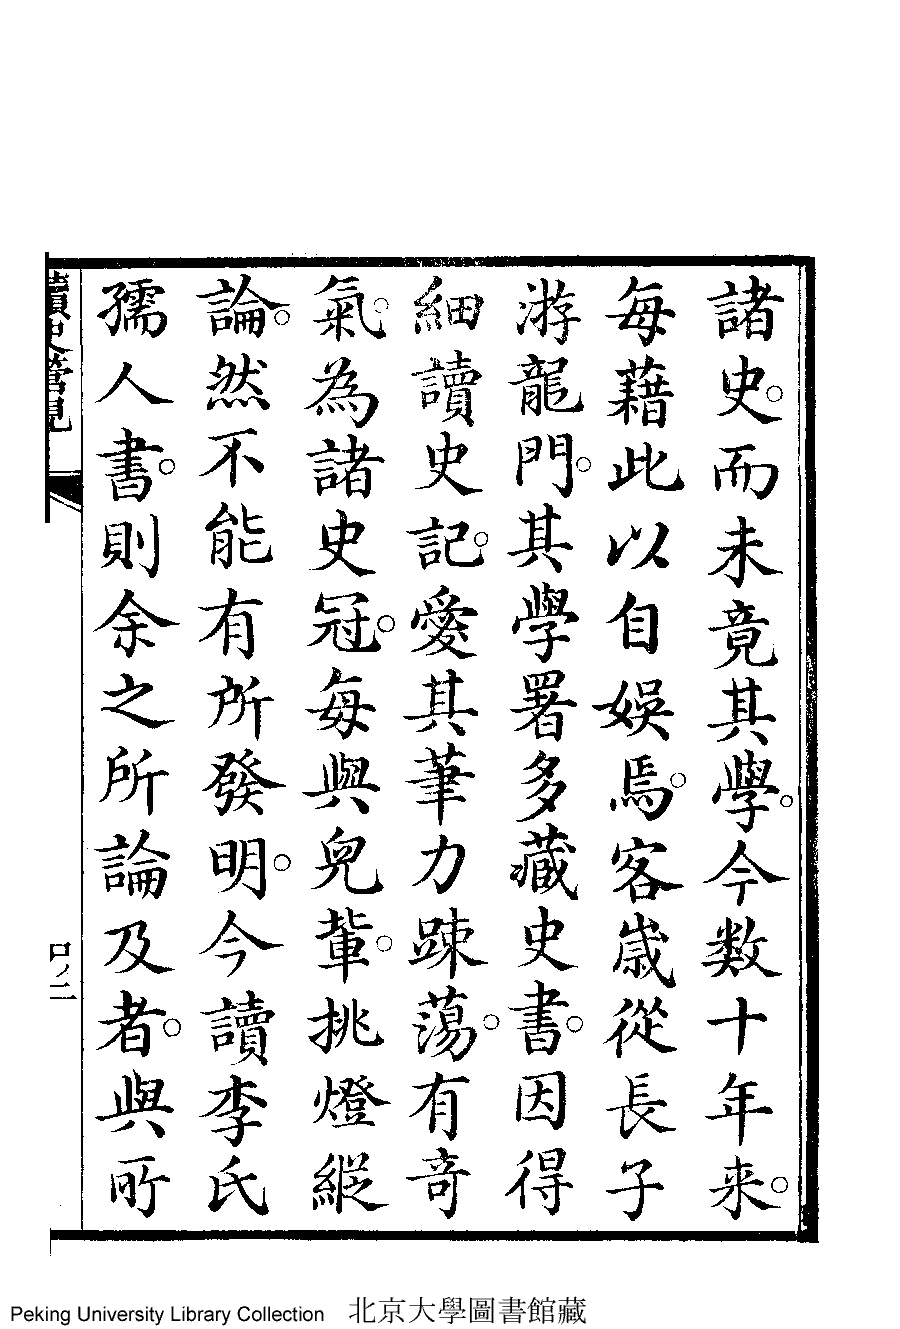 諸史。而未竟其學。今数十年来。
每藉此以自娱焉。客歲從長子
游龍門。其學署多藏史書。因得
細讀史記。愛其筆力踈蕩。有奇
氣。為諸史冠。每與兒輩。挑燈縱
論。然不能有所發明。今讀李氏
孺人書。則余之所論及者。與所
讀史管見
口ノ二
Peking University Library Collection 北京大學圖書館藏